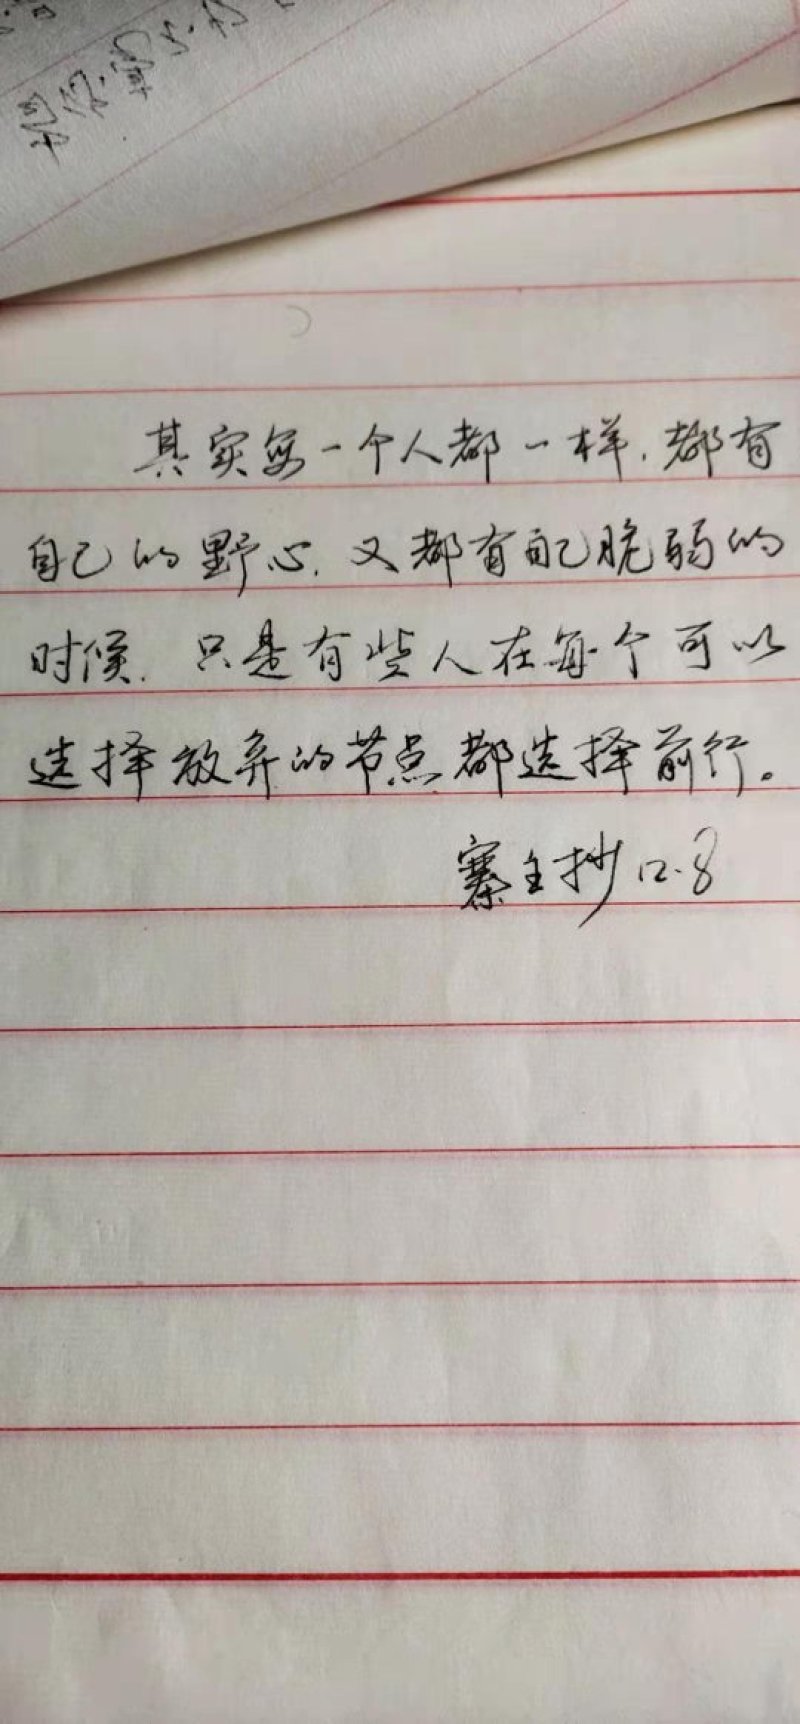 其实每一个人都一样，都有
自己的野心，又都有自己脆弱的
时候，只是有些人在每个可以
选择放弃的节点都选择前行。
寨主抄12.8